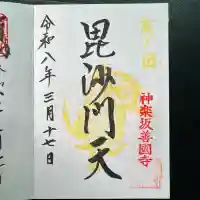 毘沙門天
神楽坂善國寺
令和八年三月十七日